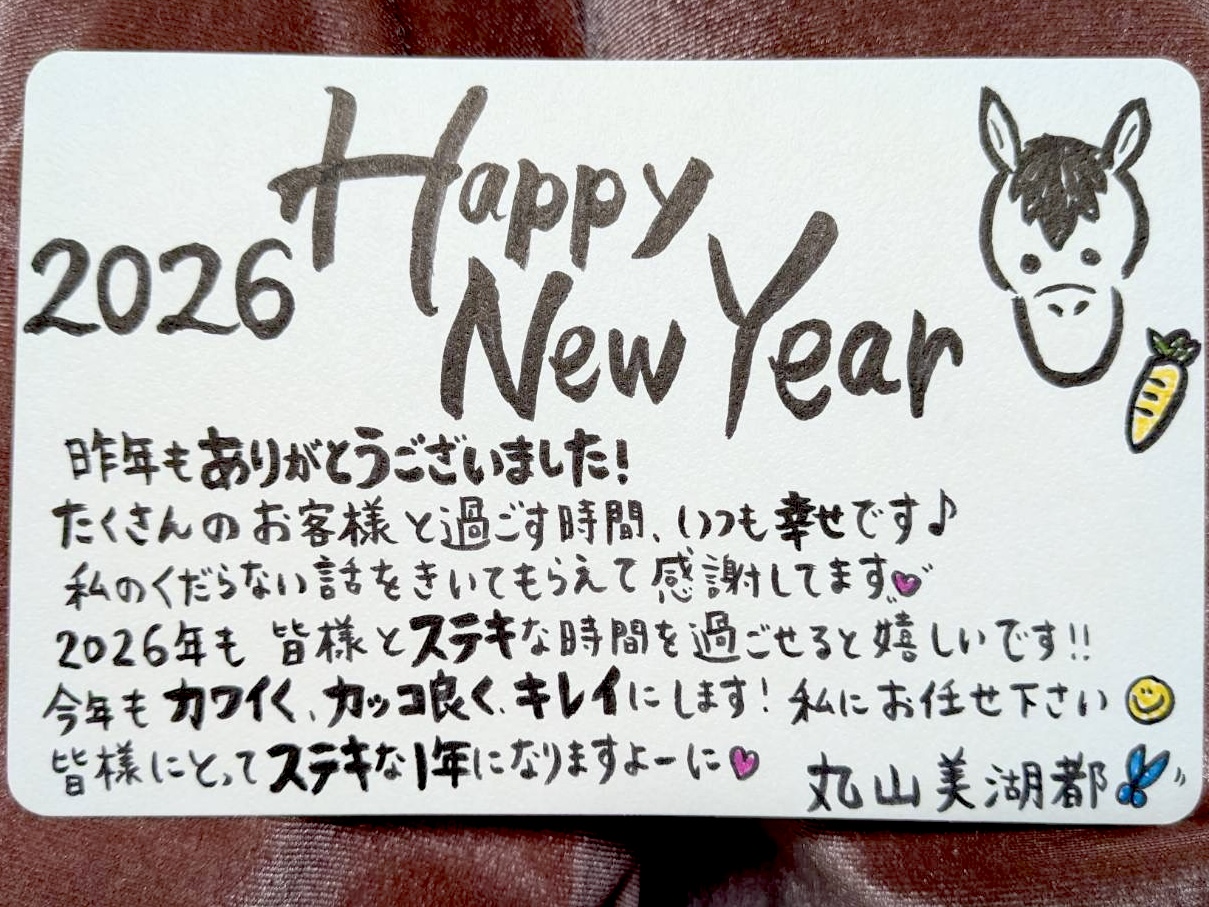 2026 Happy
New Year
昨年もありがとうございました!
たくさんのお客様と過ごす時間、いつも幸せです♪
私のくだらない話をきいてもらえて感謝してます
2026年も 皆様とステキな時間を過ごせると嬉しいです!!
今年もカワイく、カッコ良く、キレイにします! 私にお任せ下さい
皆様にとってステキな1年になりますよーに
丸山美湖都